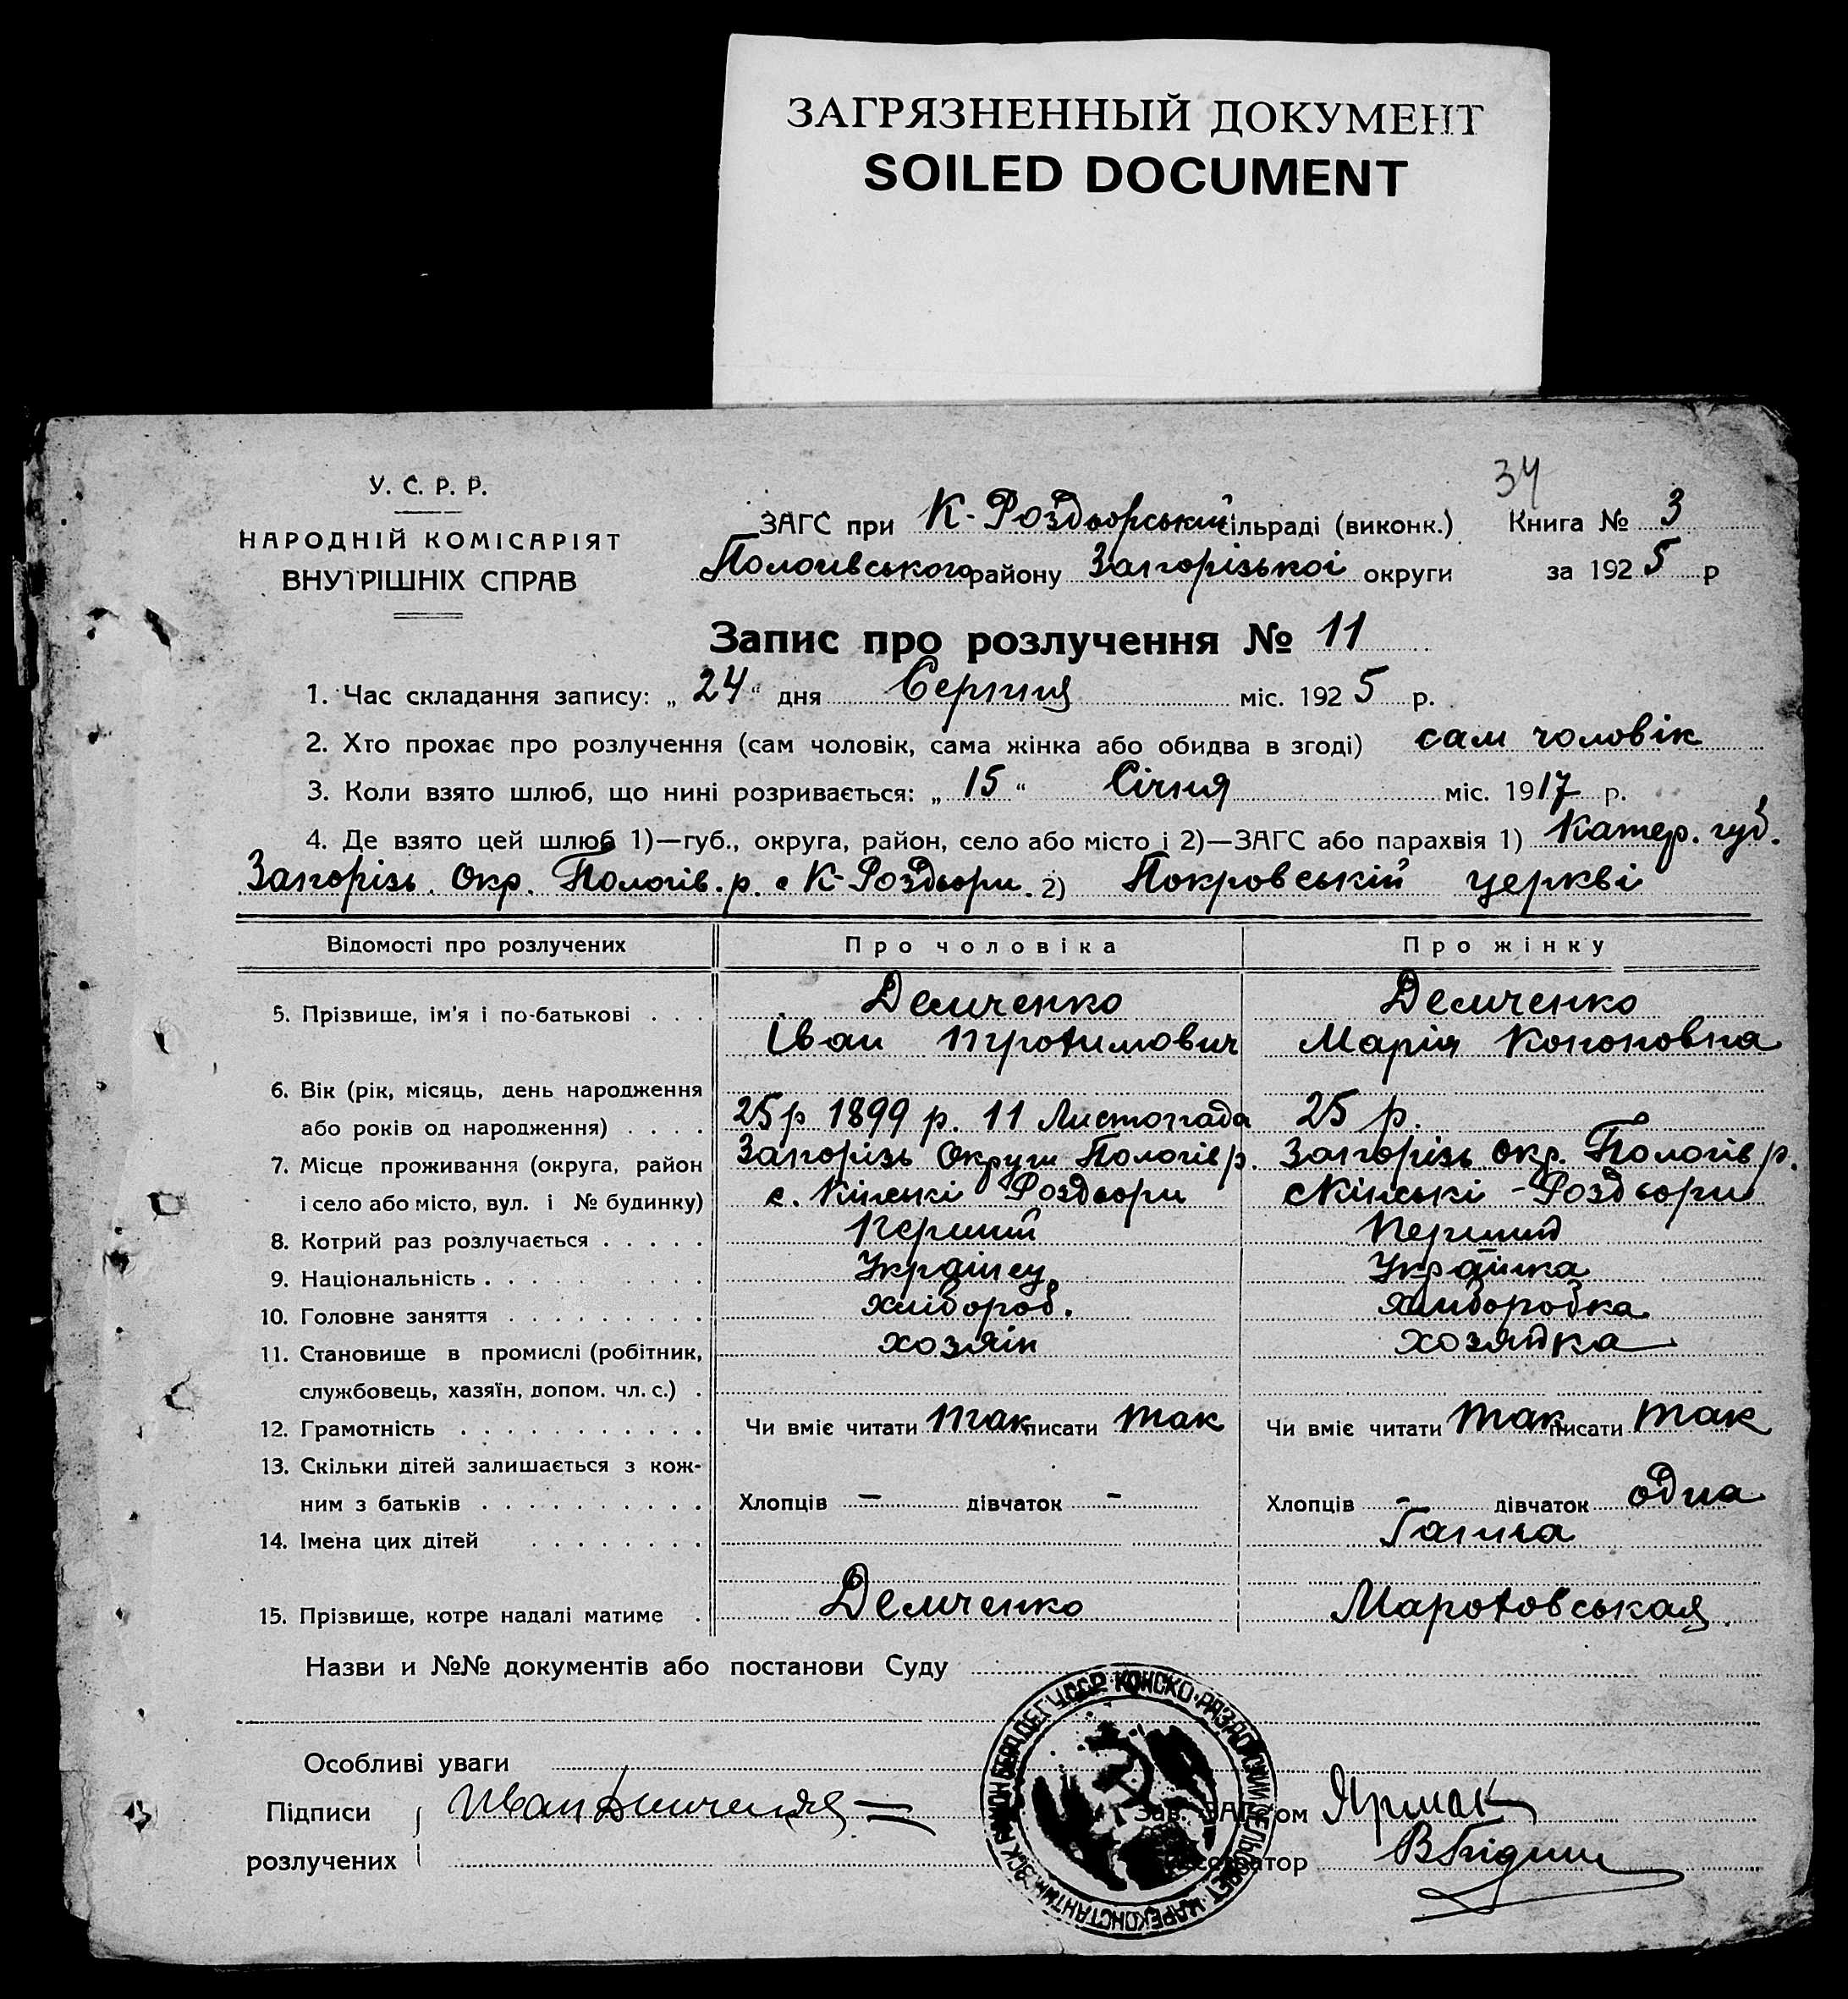 ЗАГРЯЗНЕННЫЙ ДОКУМЕНТ
SOILED DOCUMENT
34
У. С. Р. Р.
НАРОДНІЙ КОМІСАРІЯТ
ВНУТРІШНІХ СПРАВ
ЗАГС при К-Роздьорській сільраді (виконк.) Книга № 3
Пологівського району Запорізької округи за 1925 р
Запис про розлучення № 11
1. Час складання запису: „24“ дня Серпня міс. 1925 р.
2. Хто прохає про розлучення (сам чоловік, сама жінка або обидва в згоді) сам чоловік
3. Коли взято шлюб, що нині розривається: „15“ Січня міс. 1917 р.
4. Де взято цей шлюб 1)—губ., округа, район, село або місто і 2)—ЗАГС або парахвія 1) Катер. губ.
Запорізь. Окр. Пологів. р. с К-Роздьори. 2) Покровській церкві
Відомості про розлучених Про чоловіка Про жінку
5. Прізвище, ім'я і по-батькові . . . Демченко Демченко
Іван Трохимович Марія Кононовна
6. Вік (рік, місяць, день народження
або років од народження) . . . . 25 р 1899 р. 11 Листопада 25 р.
7. Місце проживання (округа, район Запорізь Округи Пологів р. Запорізь окр. Пологів р.
і село або місто, вул. і № будинку) с. Кінські Роздьори с Кінські - Роздьори
8. Котрий раз розлучається . . . . . Перший Перший
9. Національність . . . . . . . . . Українец Українка
10. Головне заняття . . . . . . . . . хлібороб. хліборобка
11. Становище в промислі (робітник, хозяін хозяйка
службовець, хазяїн, допом. чл. с.) .
12. Грамотність . . . . . . . . . . . Чи вміє читати так писати так Чи вміє читати так писати так
13. Скільки дітей залишається з кож-
ним з батьків . . . . . . . . . . Хлопців - дівчаток - Хлопців - дівчаток одна
14. Імена цих дітей . . . . . . . . Ганна
15. Прізвище, котре надалі матиме . Демченко Мароховськая
Назви и №№ документів або постанови Суду
Особливі уваги
Підписи Иван Демченко Зав. ЗАГсом Ярмак
розлучених